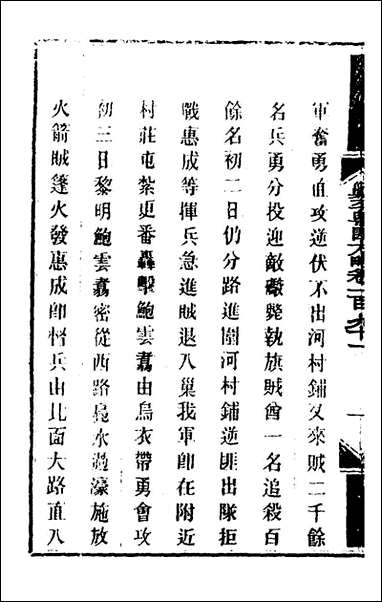 軍奮勇直攻逆伏不出河村鋪又來賊二千餘
名兵勇分投迎敵斃執旗賊酋一名追殺百
餘名初二日仍分路進圍河村鋪逆匪出隊拒
戰惠成等揮兵急進賊退入巢我軍卽在附近
村莊屯紮更番轟擊鮑雲翥由烏衣帶勇會攻
初三日黎明鮑雲翥密從西路鳧水過濠施放
火箭賊篷火發惠成卽督兵由北面大路直入
卷一百九十一